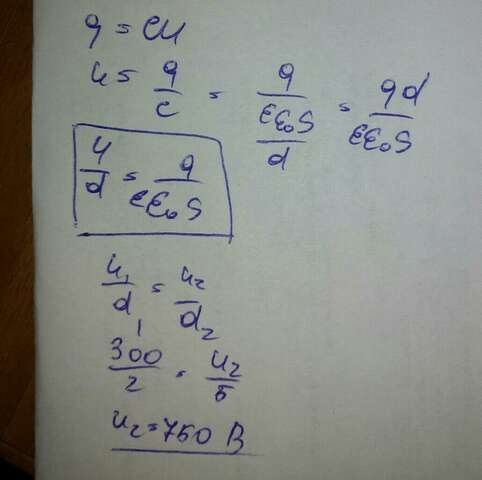 q = CU
U = q/C = q/(εε₀S/d) = qd/(εε₀S)
U/d = q/(εε₀S)
U₁/d₁ = U₂/d₂
300/2 = U₂/5
U₂ = 750 В